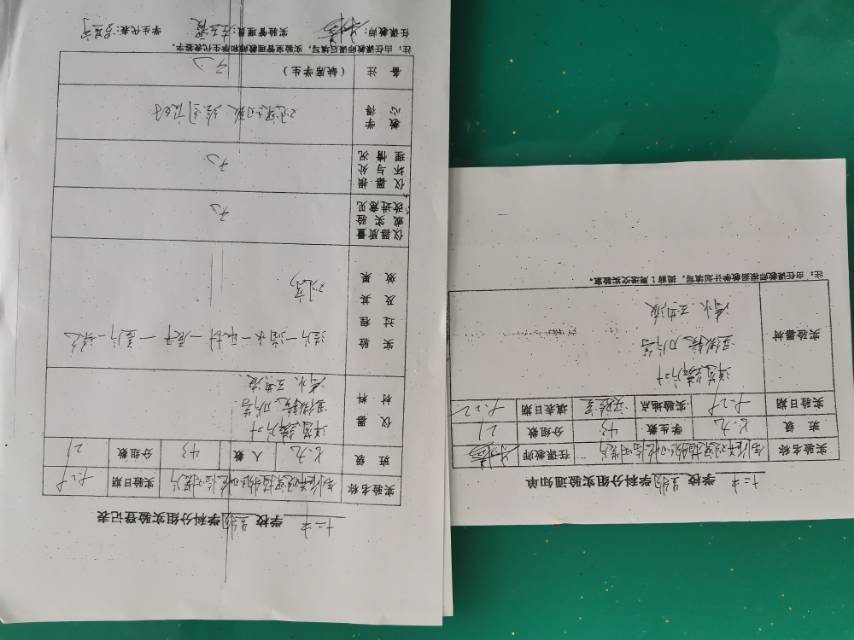 十二中 学校 生物 学科分组实验登记表
实验名称 制作并观察植物细胞临时装片 实验日期
班级 七.九 人数 43 分组数 21
仪器材料 洋葱鳞片叶
显微镜、刀片等
清水、碘液
实验过程及其效果 擦片—滴水—取材—展平—盖片—染色
仪器质量或实验改进意见 无
仪器损坏与处理情况 无
教学心得
备注 (缺席学生) 无
注:由任课教师课后填写,实验室管理教师和学生代表签字。
任课教师: 实验管理员: 学生代表:
十二中 学校 生物 学科分组实验通知单
实验名称 制作并观察植物细胞临时装片 任课教师
班级 七.九 学生数 43 分组数 21
实验日期 实验地点 实验室 填表日期
实验器材 洋葱鳞片叶
显微镜、刀片等
清水、碘液
注:由任课教师根据教学计划填写,提前1周送交实验室。